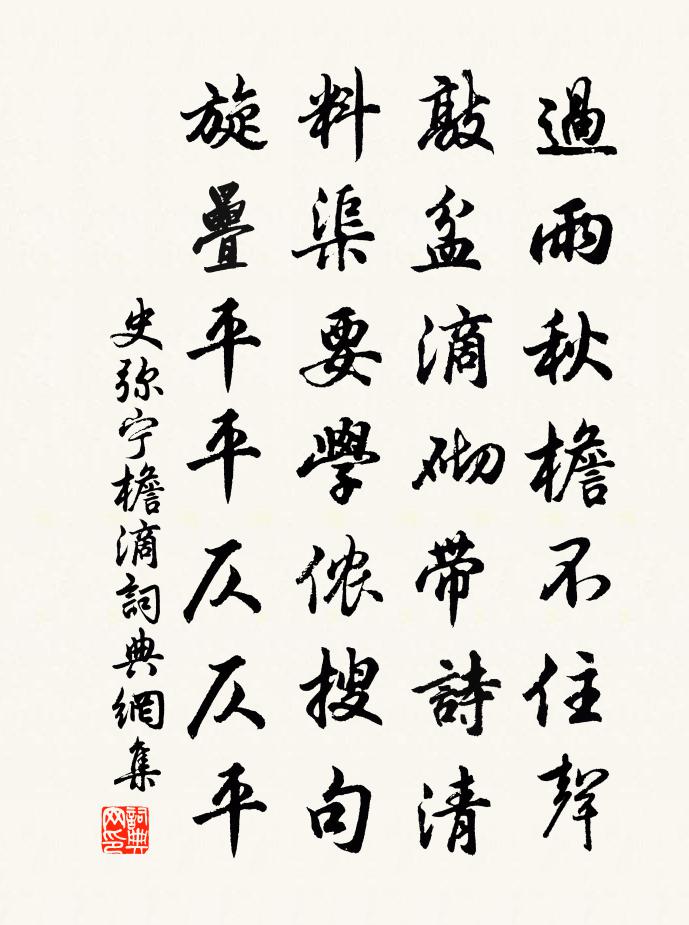 過雨秋檐不住聲
敲盆滴砌帶詩清
料渠要學侬搜句
旋疊平平仄仄平
史弥宁檐滴詞典網集
詞典网印